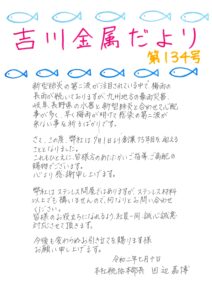 吉川金属だより
第134号
新型肺炎の第二波が注目されている中で梅雨の
長雨が続いておりますが、九州地方の豪雨災害、
岐阜、長野県の水害と新型肺炎と合わせて心配
事が多く、早く梅雨が明けて感染の第二波が
来ない事を祈るばかりです。
さて、この度、弊社は9月1日より創業75年目を迎える
こととなりました。
これもひとえに皆様方のあたたかいご指導ご高配の
賜物でございます。
心より感謝申し上げます。
弊社はステンレス問屋ではありますが、ステンレス材料
以上でも構いませんので、何なりとお問い合わせ
ください。
皆様のお役立ちになれるよう、社員一同、誠心誠意
対応させて頂きます。
今後も変わらぬお引き立てを賜ります様
お願い申し上げます。
令和二年七月吉日